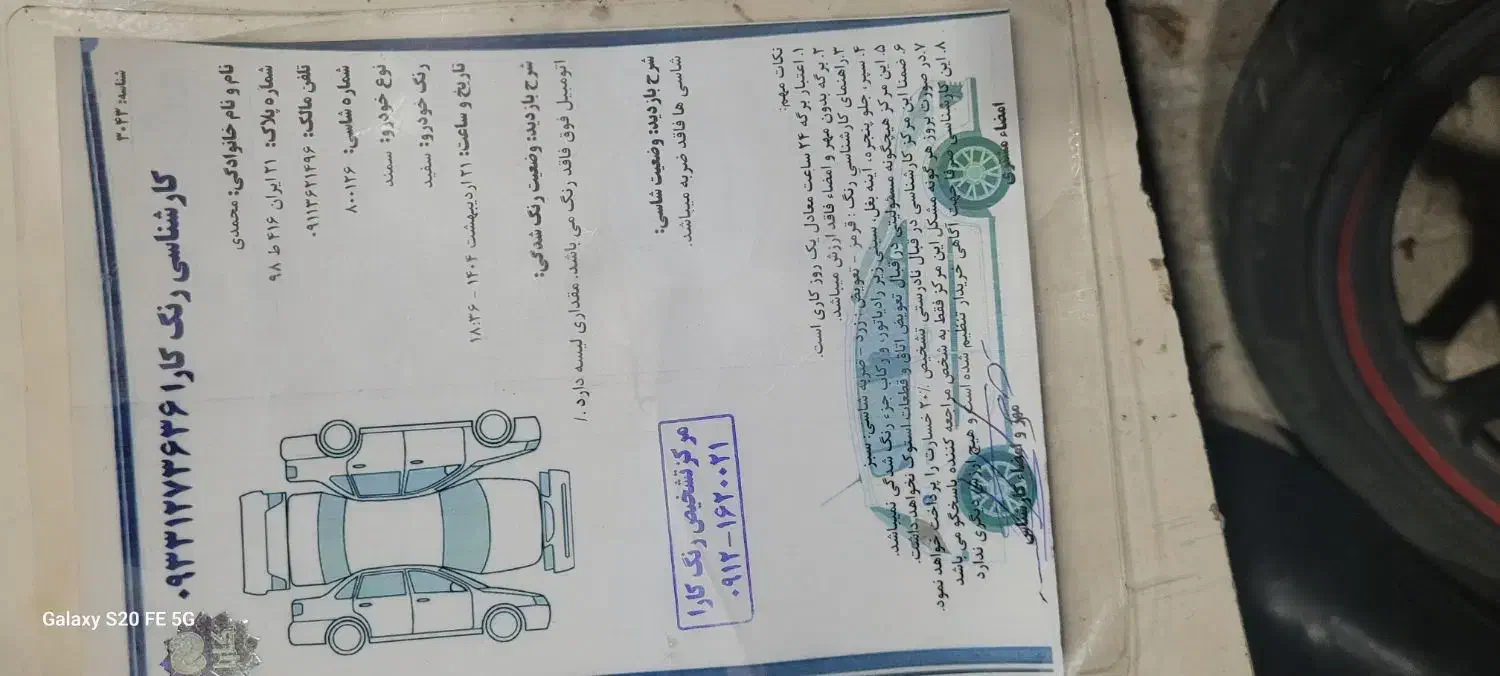 شناسه: ۳۰۴۳
کارشناسی رنگ کارا ۰۹۳۳۱۲۷۳۶۳۶
نام و نام خانوادگی: محمدی
شماره پلاک: ۲۱ ایران ۴۱۶ ط ۹۸
تلفن مالک: ۰۹۱۱۳۶۲۱۴۹۶
شماره شاسی: ۸۰۰۱۲۶
نوع خودرو: سمند
رنگ خودرو: سفید
تاریخ و ساعت: ۲۱ اردیبهشت ۱۴۰۴ - ۱۸:۳۶
شرح بازدید: وضعیت رنگ شدگی:
اتومبیل فوق فاقد رنگ می باشد. مقداری لیسه دارد ./
شرح بازدید: وضعیت شاسی:
شاسی ها فاقد ضربه میباشد.
مرکز تشخیص رنگ کارا
۰۹۱۲-۱۶۲۰۰۲۱
نکات مهم:
۱. اعتبار برگه ۲۴ ساعت معادل یک روز کاری است.
۲. برگه بدون مهر و امضاء فاقد ارزش میباشد.
۳. راهنمای کارشناسی رنگ: قرمز - تعویض، زرد - ضربه شاسی: سبز
۴. سپر، جلو پنجره، آینه بغل، سینی زیر رادیاتور، و رکاب جزء رنگ شدگی نمیباشد.
۵. این مرکز هیچگونه مسئولیتی در قبال تعویض اتاق و قطعات استوک نخواهد داشت.
۶. ضمنا این مرکز کارشناسی در قبال نادرستی تشخیص ۲۰٪ خسارت را پرداخت خواهد نمود.
۷. در صورت بروز هرگونه مشکل این مرکز فقط به شخص مراجعه کننده پاسخگو می باشد
۸. این کارشناسی صرفا جهت آگاهی خریدار تنظیم شده است و هیچ ارزش دیگری ندارد
امضاء مشتری
مهر و امضاء کارشناس
کارا
Galaxy S20 FE 5G